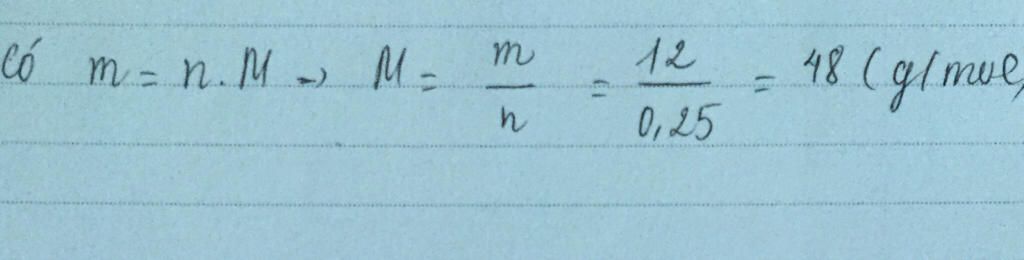 Có m = n.M → M = m/n = 12/0,25 = 48 (g/mol)